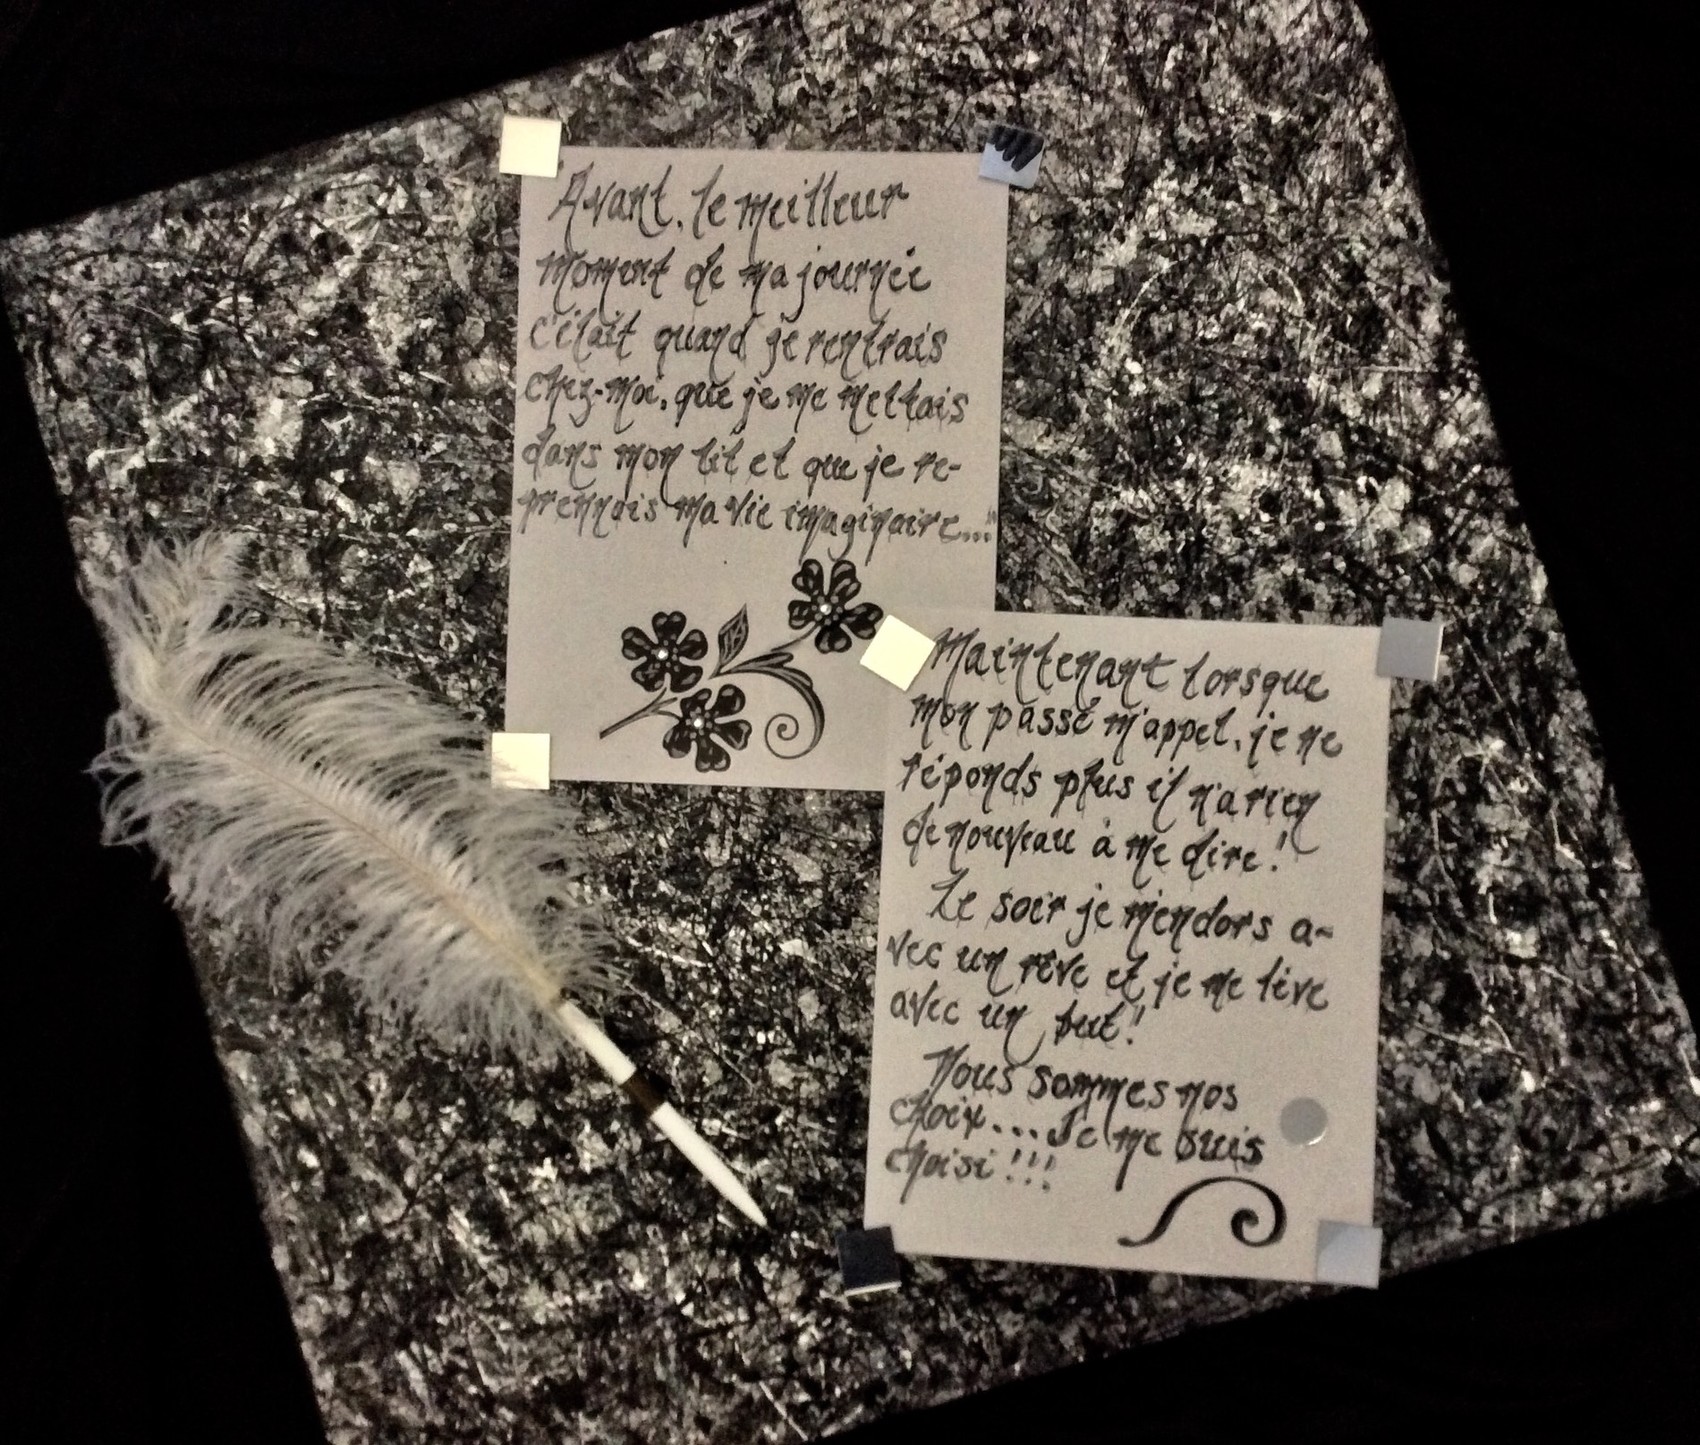 "Avant, le meilleur
moment de ma journée
c'était quand je rentrais
chez-moi, que je me mettais
dans mon lit et que je re-
prennais ma vie imaginaire..."
Maintenant lorsque
mon passé m'appel, je ne
réponds plus il n'a rien
de nouveau à me dire!
Le soir je m'endors a-
vec un rêve et je me lève
avec un but!
Nous sommes nos
choix... Je me suis
choisi!!!